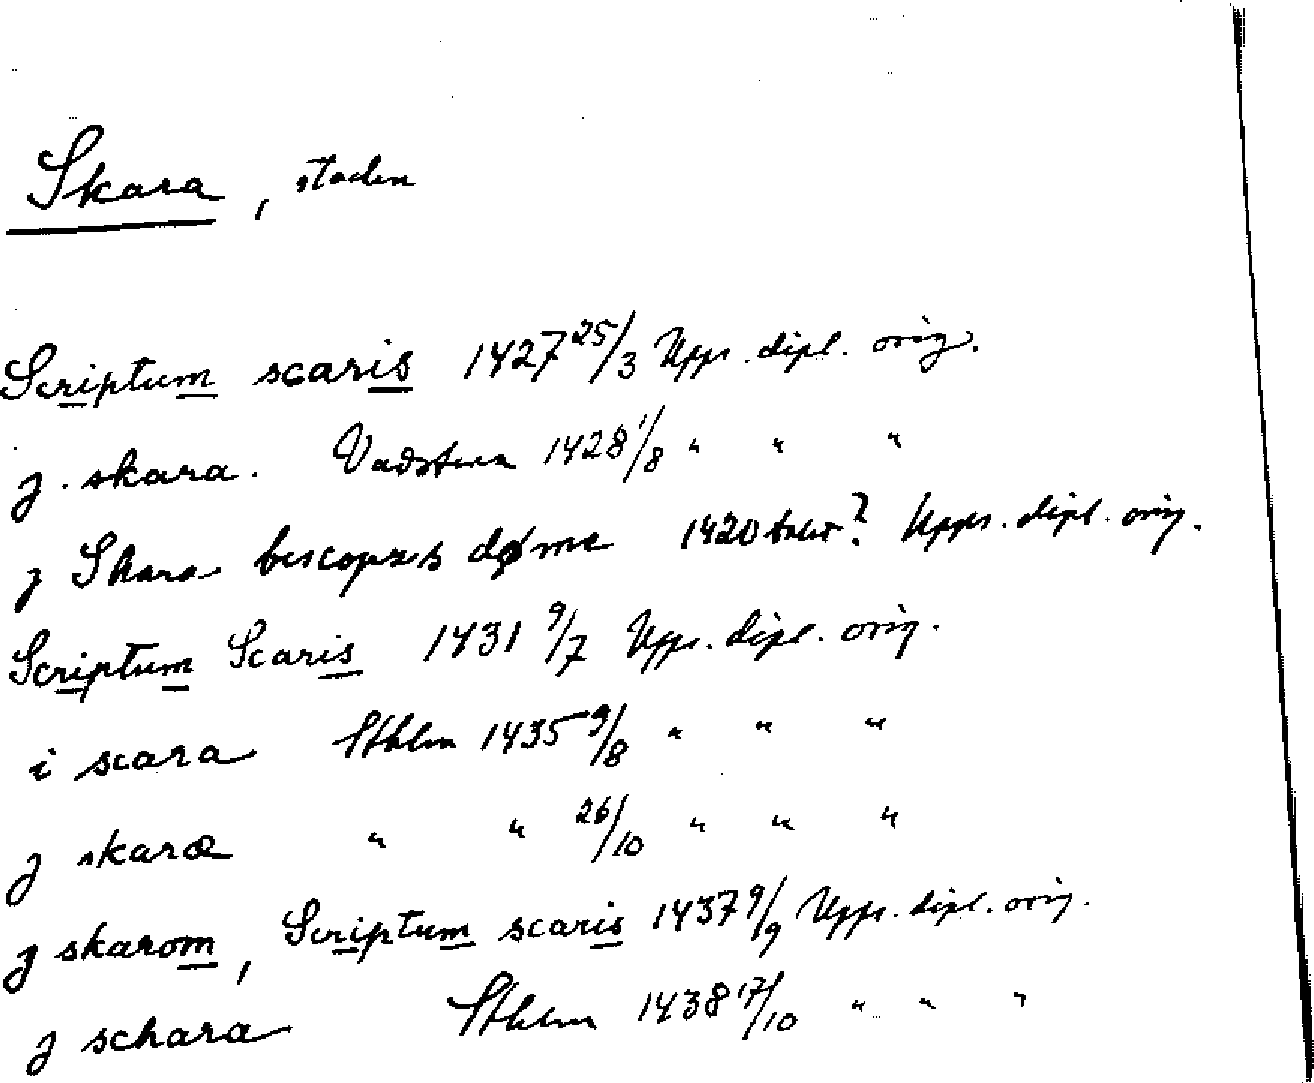 Skara, staden
Scriptum scaris 1427 25/3 Upps. dipl. orig.
j. skara. Vadstena 1428 1/8 " " "
j Skara biscopxs døme 1420 talet? Upps. dipl. orig.
Scriptum Scaris 1431 9/7 Upps. dipl. orig.
i scara Sthlm 1435 9/8 " " "
j skaræ " " 26/10 " " "
j skarom, Scriptum scaris 1437 9/9 Upps. dipl. orig.
j schara Sthlm 1438 17/10 " " "